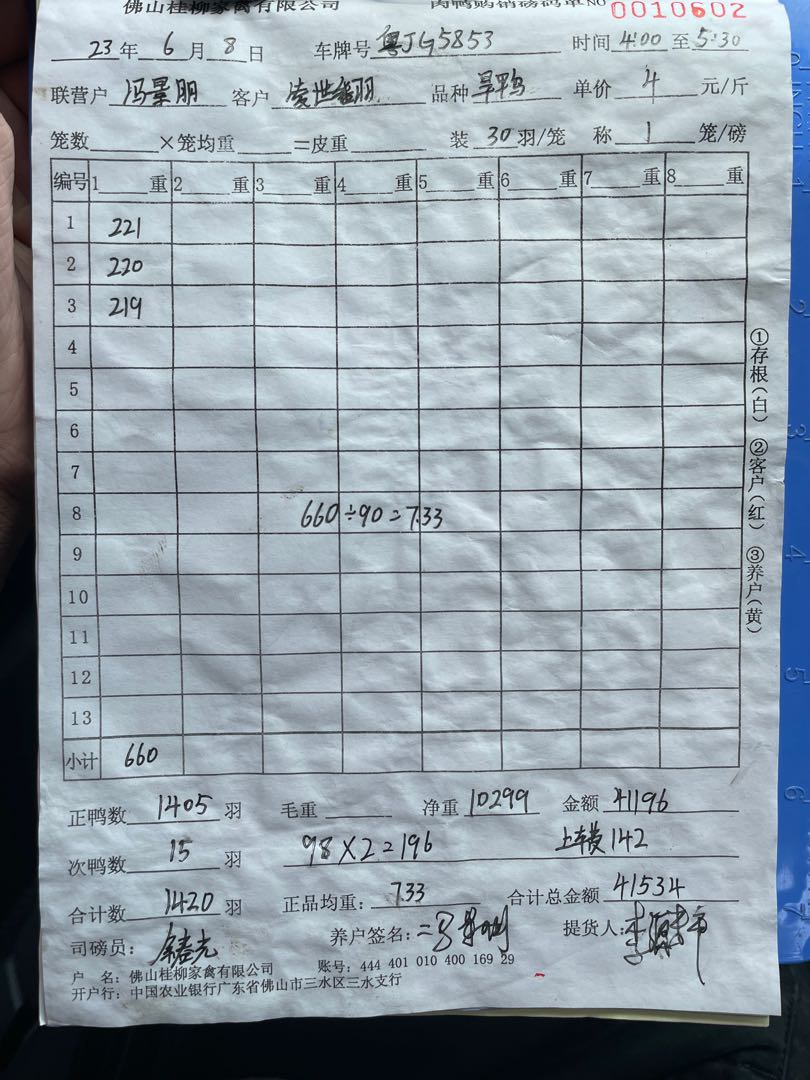 佛山桂柳家禽有限公司 肉鸭购销磅码单 NO 0010602
23年 6月 8日 车牌号 粤JG5853 时间 4:00 至 5:30
联营户 冯景朋 客户 凌世 羽 品种 旱鸭 单价 4 元/斤
笼数____×笼均重____=皮重____ 装 30 羽/笼 称 1 笼/磅
编号 1__重 2__重 3__重 4__重 5__重 6__重 7__重 8__重
1 221
2 220
3 219
4
5
6
7
8 660÷90=7.33
9
10
11
12
13
小计 660
正鸭数 1405 羽 毛重____ 净重 10299 金额 41196
次鸭数 15 羽 98×2=196 上车费 142
合计数 1420 羽 正品均重: 7.33 合计总金额 41534
司磅员: 养户签名: 提货人:
户 名: 佛山桂柳家禽有限公司 账号: 444 401 010 400 169 29
开户行: 中国农业银行广东省佛山市三水区三水支行
①存根(白) ②客户(红) ③养户(黄)